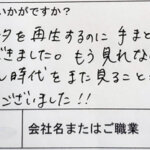 いかがですか？
タを再生するのに手まと
できました。もう見れな
し時代をまた見ること
ございました！！
会社名またはご職業